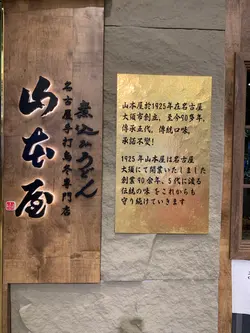 煮込みうどん
名古屋手打烏冬專門店
山本屋
山本屋於1925年在名古屋
大須市創立，至今90多年，
傳承五代，傳統口味，
承諾不變!
1925年山本屋は名古屋
大須にて開業いたしました
創業90余年、5代に渡る
伝統の味をこれからも
守り続けていきます